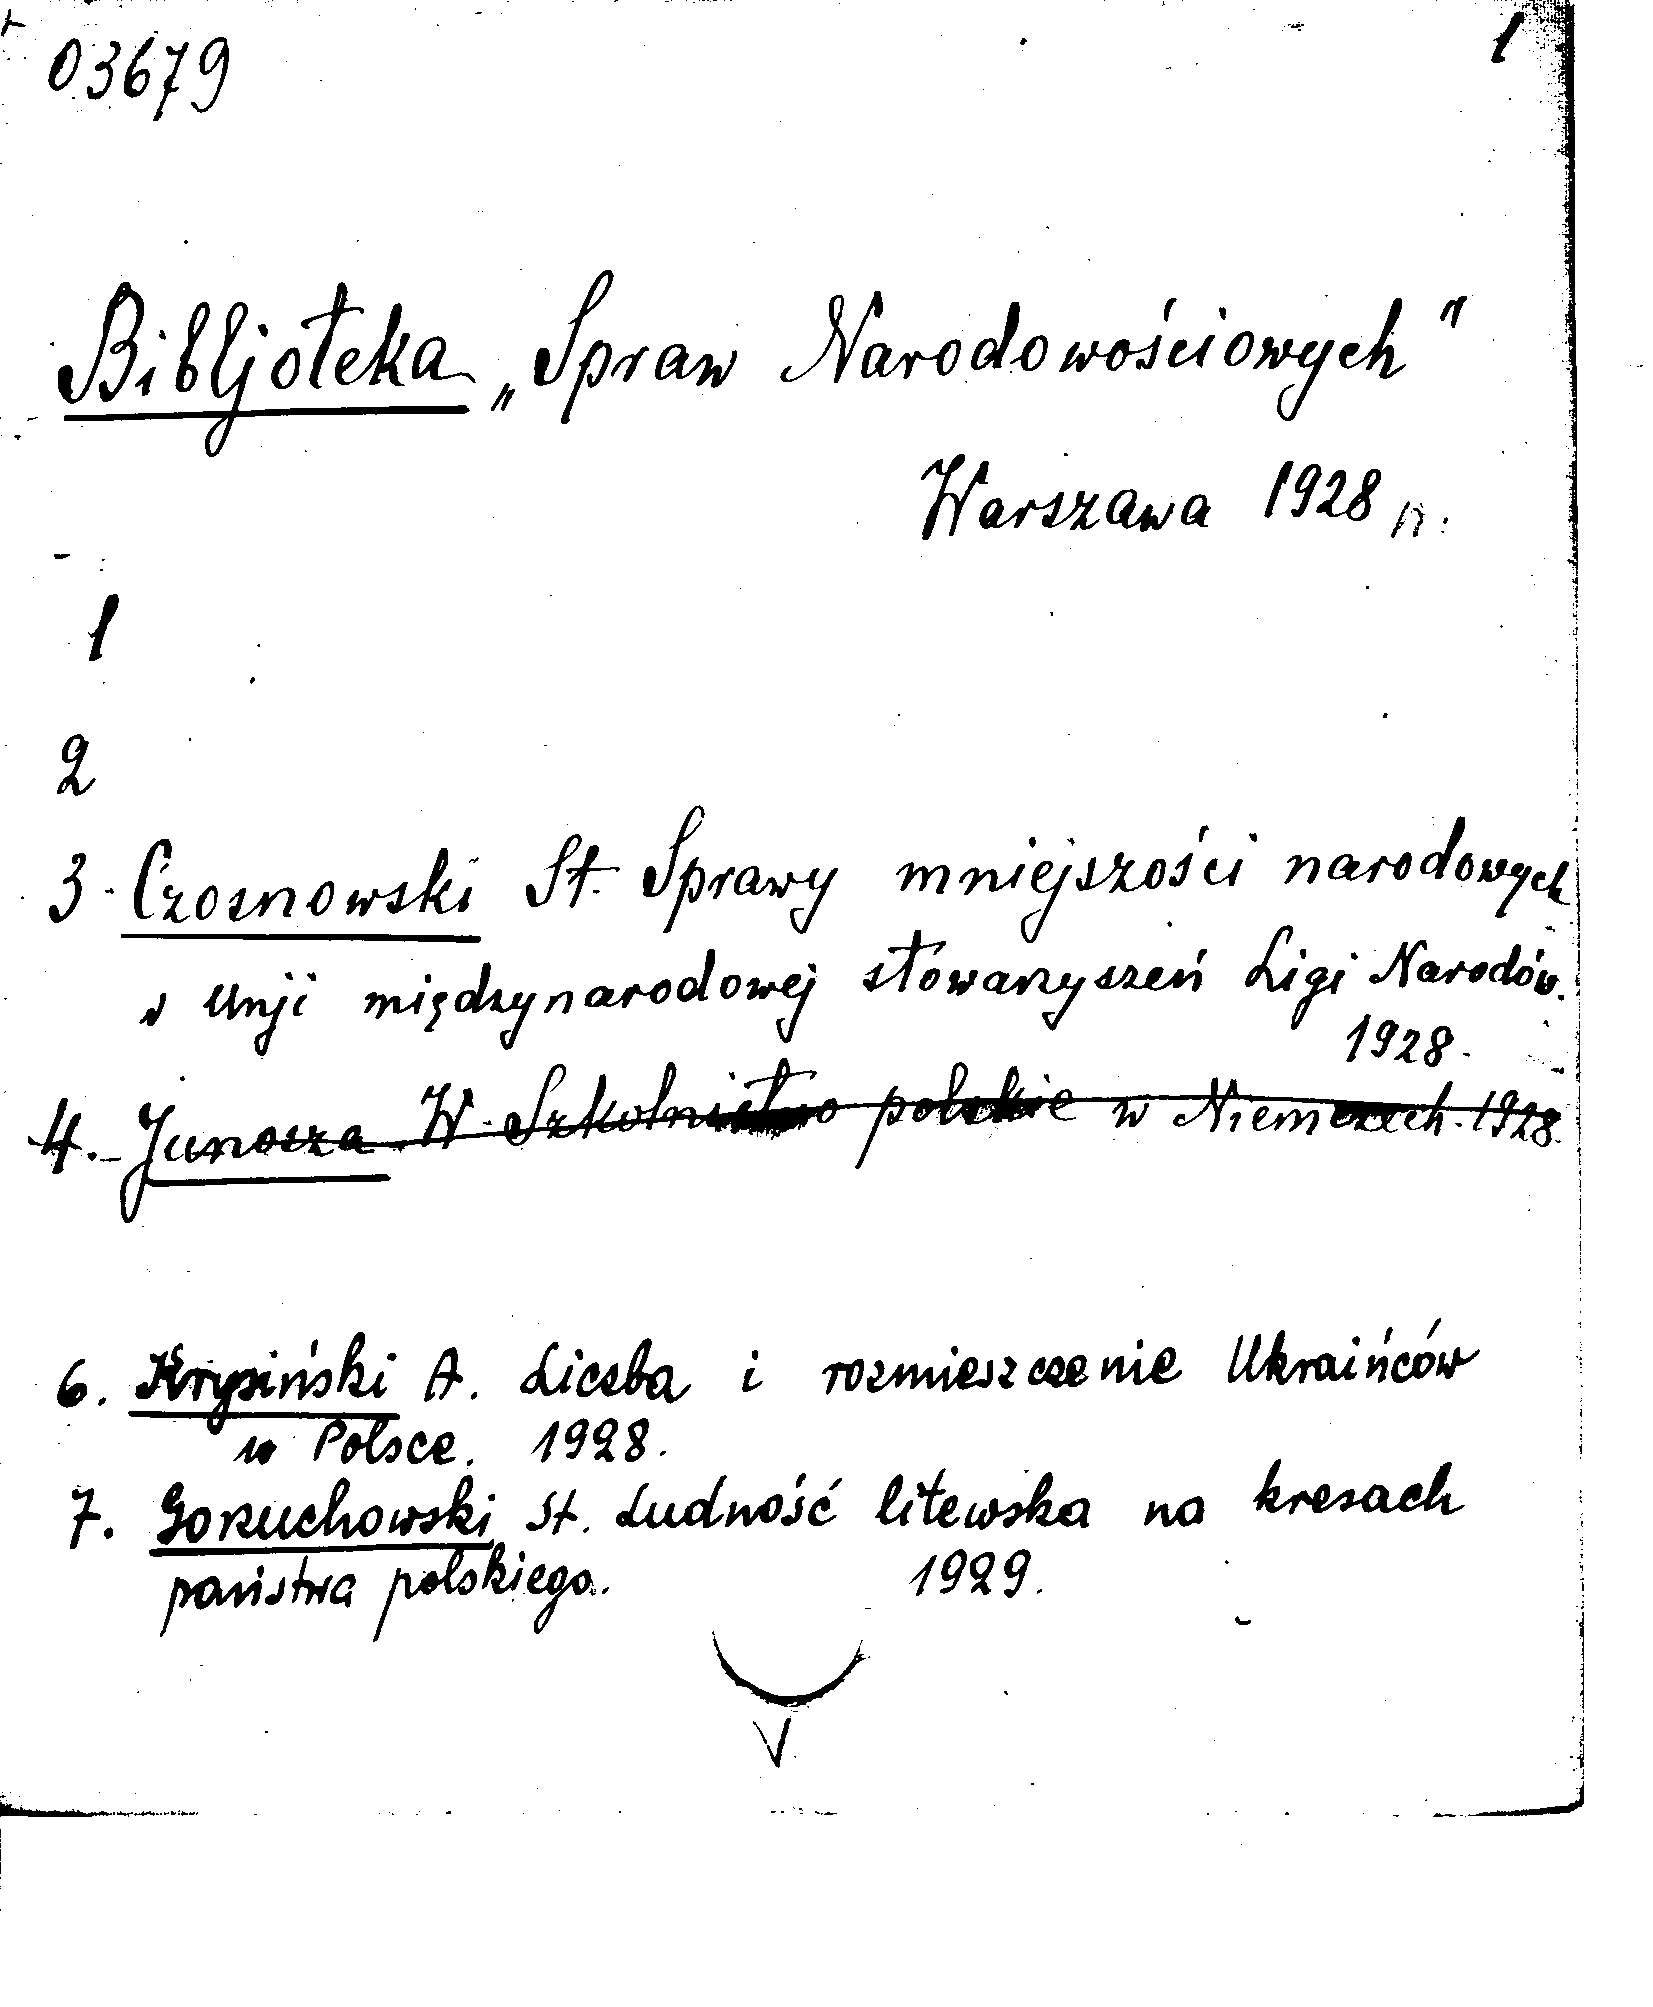 03679 1
Bibljoteka „Spraw Narodowościowych"
Warszawa 1928 r.
1
2
3. Czosnowski St. Sprawy mniejszości narodowych
w Unji międzynarodowej stowarzyszeń Ligi Narodów.
1928.
4. Junosza W. Szkolnictwo polskie w Niemczech. 1928.
6. Krysiński A. Liczba i rozmieszczenie Ukraińców
w Polsce. 1928.
7. Gorzuchowski St. Ludność litewska na kresach
państwa polskiego. 1929.